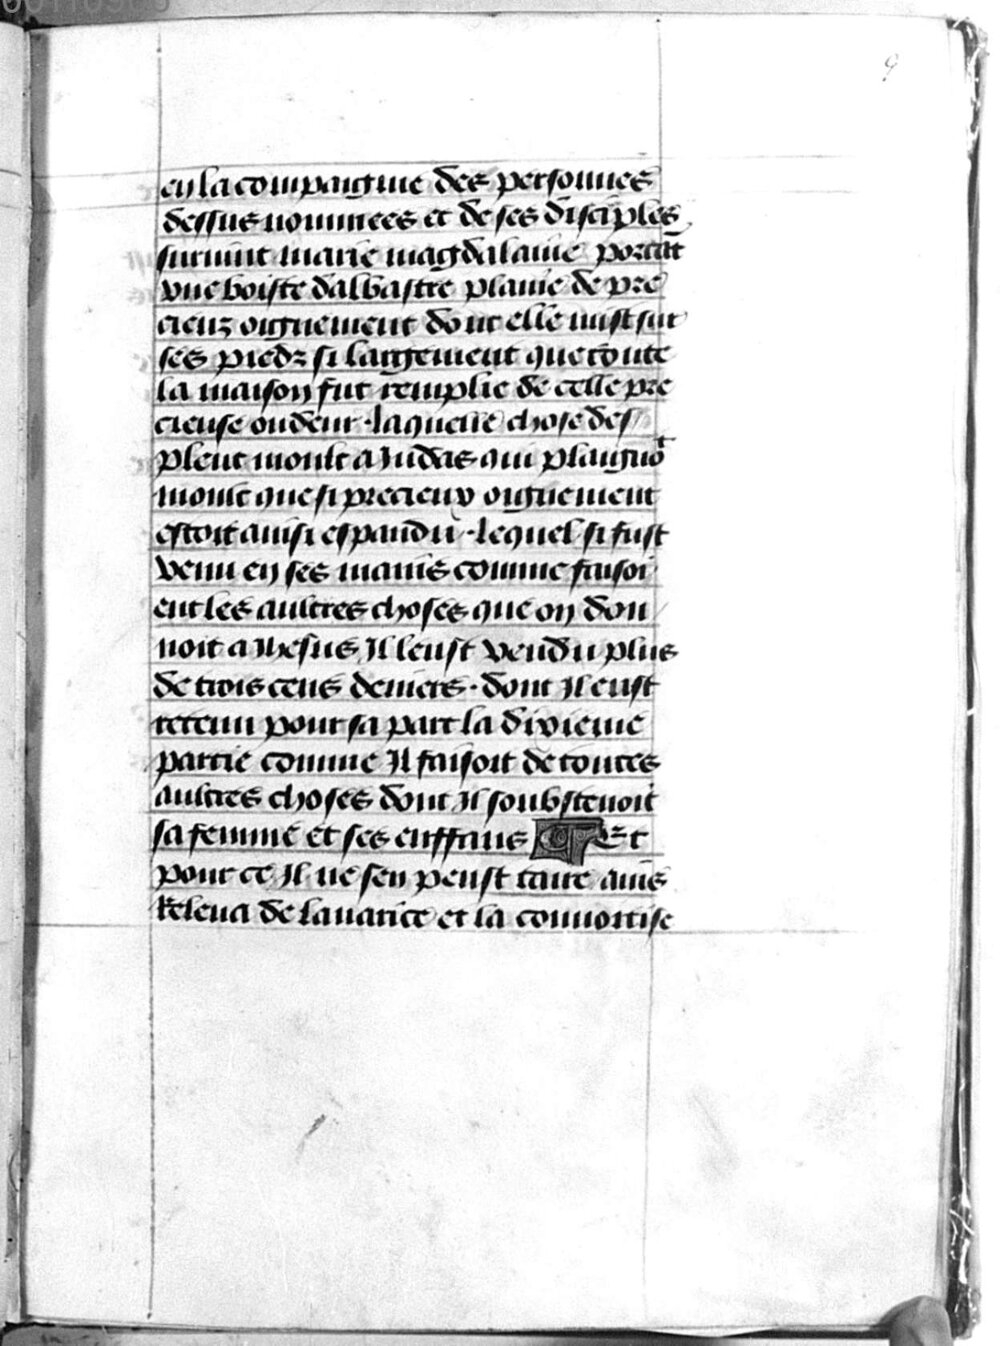 9
en la compaignie des personnes
dessus nommees et de ses disciples
suruint marie magdalaine portāt
vne boiste dalbastre plaine de pre
cieuz oignement dont elle mist sur
ses piedz si largement que toute
la maison fut remplie de celle pre
cieuse oudeur · laquelle chose des
pleut moult a Judas qui plaignoͭ
moult que si precieux oignement
estoit ainsi espandu · lequel si fust
venu en ses mains comme faisoi
ent les aultres choses que on don
noit a Jhesus Il leust vendu plus
de trois cens deniers · dont Il eust
retenu pour sa part la dixieme
partie comme Il faisoit de toutes
aultres choses dont Il soubstenoit
sa femme et ses enffans Et
pour ce Il ne sen peust taire ains
Releua de lauarice et la conuoitise